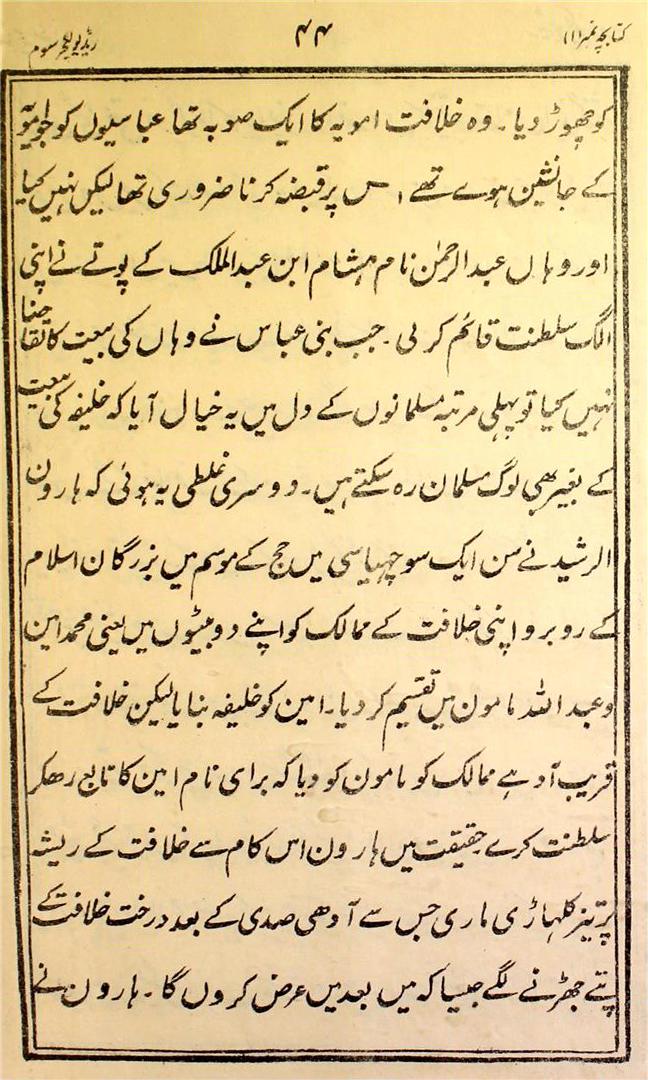 کتابچہ نمبر (۱) ۴۴ ریڈیو لکچر سوم
کو چھوڑ دیا ۔ وہ خلافت امویہ کا ایک صوبہ تھا عباسیوں کو جو امویہ
کے جانشین ہوے تھے اس پر قبضہ کرنا ضروری تھا لیکن نہیں کیا
اور وہاں عبدالرحمٰن نام ہشام ابن عبدالملک کے پوتے نے اپنی
الگ سلطنت قائم کر لی ۔ جب بنی عباس نے وہاں کی بیعت کا تقاضا
نہیں کیا تو پہلی مرتبہ مسلمانوں کے دل میں یہ خیال آیا کہ خلیفہ کی بیعت
کے بغیر بھی لوگ مسلمان رہ سکتے ہیں ۔ دوسری غلطی یہ ہوئی کہ ہارون
الرشید نے سن ایک سو چھیاسی میں حج کے موسم میں بزرگان اسلام
کے روبرو اپنی خلافت کے ممالک کو اپنے دو بیٹوں میں یعنی محمد امین
و عبد اللہ مامون میں تقسیم کر دیا ۔ امین کو خلیفہ بنایا لیکن خلافت کے
قریب آدہے ممالک کو مامون کو دیا کہ برای نام امین کا تابع رھکر
سلطنت کرے حقیقت میں ہارون اس کام سے خلافت کے ریشہ
پر تیز کلہاڑی ماری جس سے آدھی صدی کے بعد درخت خلافت کے
پتے جھڑنے لگے جیسا کہ میں بعد میں عرض کروں گا ۔ ہارون نے